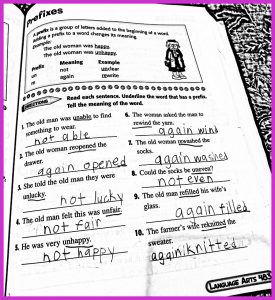 Prefixes
A prefix is a group of letters added to the beginning of a word.
Adding a prefix to a word changes its meaning.
Example:
The old woman was happy.
The old woman was unhappy.
Prefix Meaning Example
un not unclear
re again rewrite
DIRECTIONS
Read each sentence. Underline the word that has a prefix.
Tell the meaning of the word.
1. The man was unable to find
something to wear.
not able
2. The old woman reopened the
drawer.
again opened
3. She told the old man they were
unlucky.
not lucky
4. The old man felt this was unfair.
not fair
5. He was very unhappy.
not happy
6. The woman asked the man to
rewind the yarn.
again wind
7. The old woman rewashed the
socks.
again washed
8. Could the socks be uneven?
not even
9. The old man refilled his wife's
glass.
again filled
10. The farmer's wife reknitted the
sweater.
again knitted
LANGUAGE ARTS 483